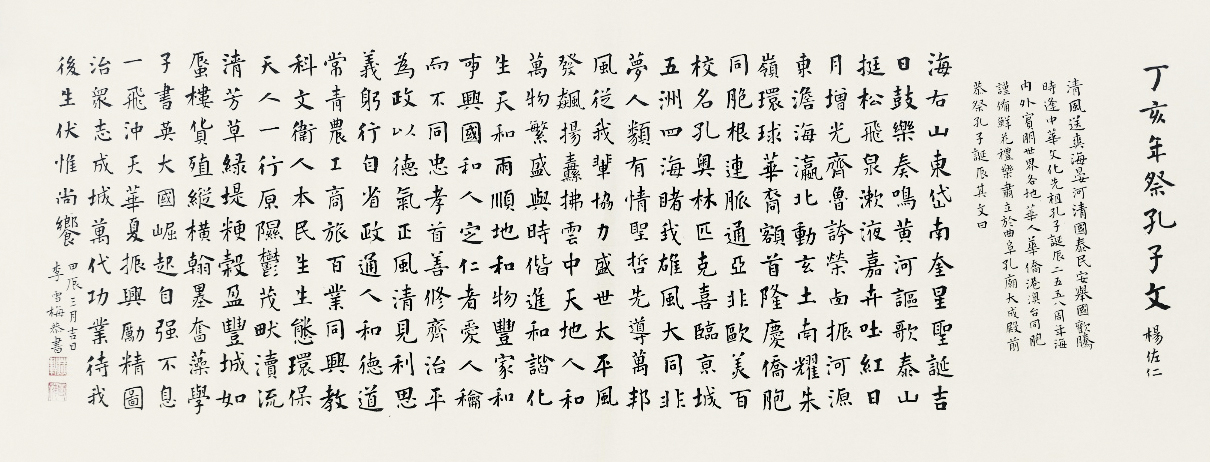 丁亥年祭孔子文
楊佐仁
清風送爽海晏河清國泰民安舉國歡騰
時逢中華文化先祖孔子誕辰二五五八周年海
內外賓朋世界各地華人華僑港澳台同胞
謹備鮮花禮樂肅立於曲阜孔廟大成殿前
恭祭孔子誕辰其文曰
海右山東岱南奎星聖誕吉
日鼓樂奏鳴黃河謳歌泰山
挺松飛泉漱液嘉卉吐紅日
月增光齊魯誇榮南振河源
東澹海瀛北動玄土南耀朱
嶺環球華裔額首隆慶僑胞
同胞根連脈通亞非歐美百
校名孔奧林匹克喜臨京城
五洲四海睹我雄風大同非
夢人類有情聖哲先導萬邦
風從我輩協力盛世太平風
發飆揚纛拂雲中天地人和
萬物繁盛與時偕進和諧化
生天和雨順地和物豐家和
事興國和人定仁者愛人龢
而不同忠孝首善修齊治平
為政以德氣正風清見利思
義躬行自省政通人和德道
常青農工商旅百業同興教
科文衛人本民生生態環保
天人一行原隰鬱茂畎瀆流
清芳草綠堤粳穀盈豐城如
蜃樓貨殖縱橫翰墨奮藻學
子書英大國崛起自强不息
一飛沖天華夏振興勵精圖
治眾志成城萬代功業待我
後生伏惟尚饗
甲辰三月吉日
李雪梅恭書